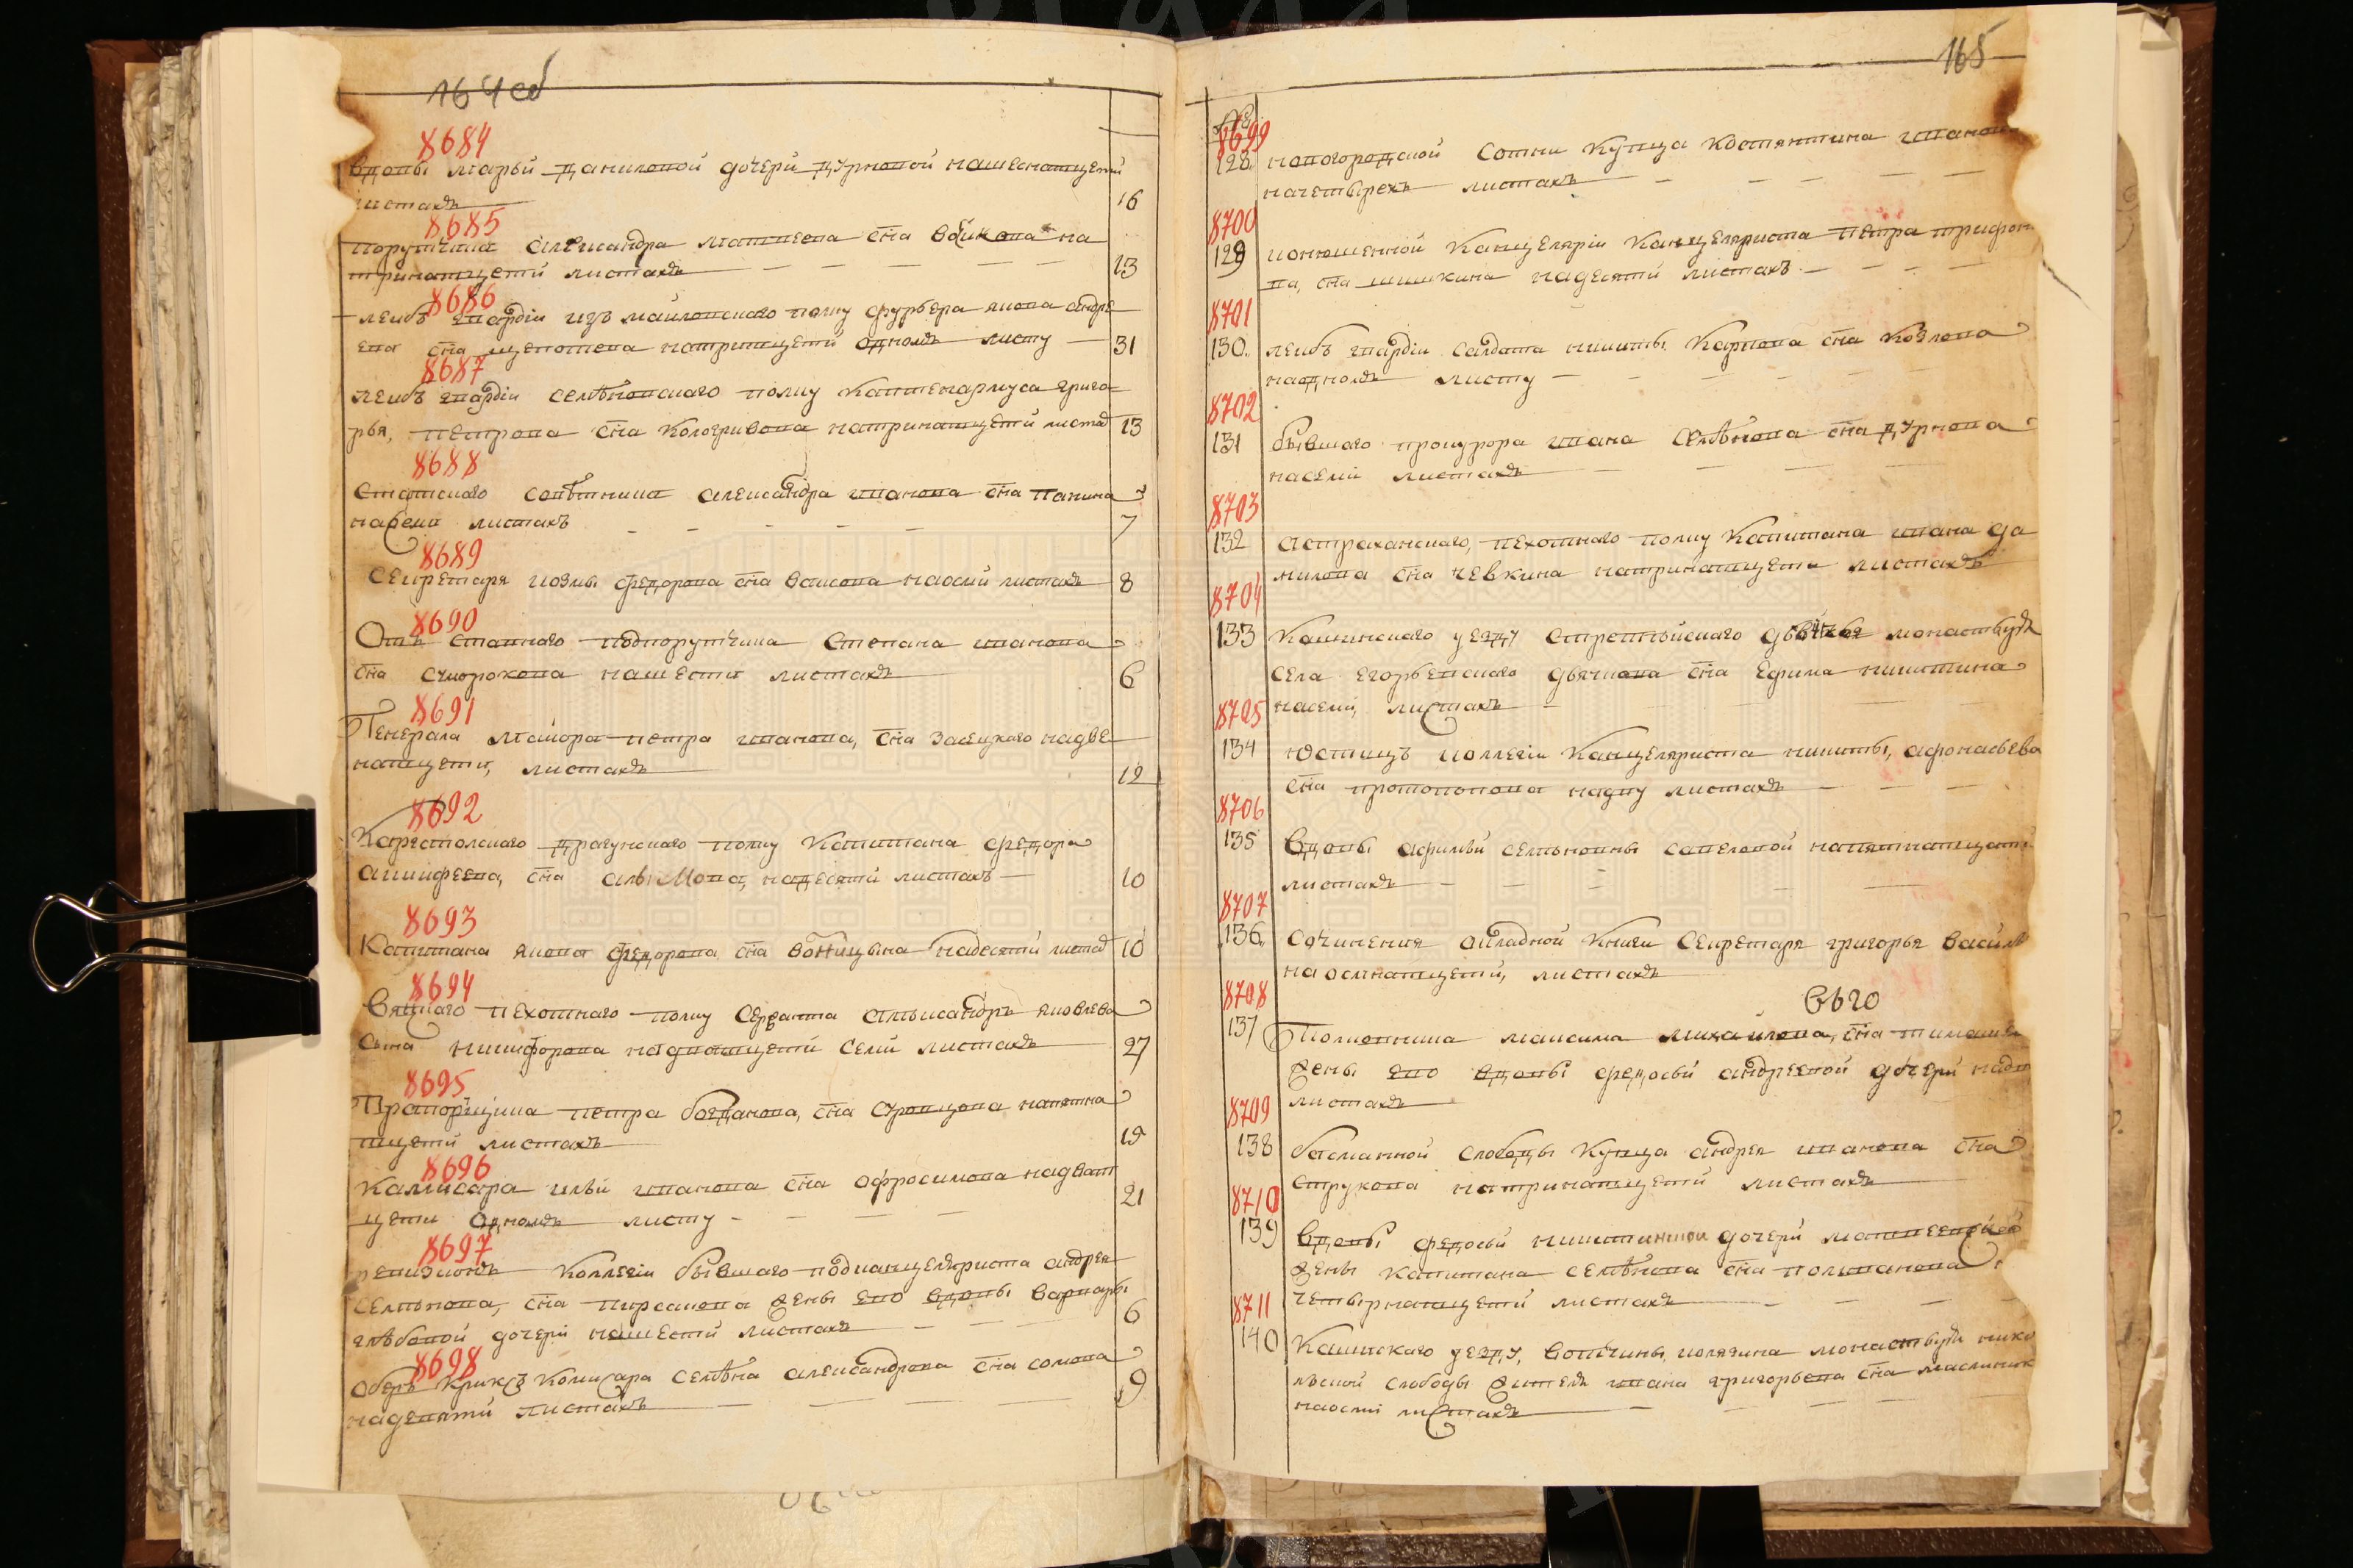 164 об
8684
вдовы марьи даниловой дочери дурновой нашеснатцети
листахъ 16
8685
порутчика александра матвеева сна воикова на
тринатцети листахъ 13
8686
леибъ гвардіи измаиловского полку фурьера якова андре
ева сна щепотева натритцети одномъ листу 31
8687
леибъ гвардіи семеновского полку каптенармуса григо
рья, петрова сна кологривова натринатцети листах 13
8688
статского советника александра иванова сна панина
насеми листахъ 7
8689
секретаря козмы федорова сна наосми листахъ 8
8690
Отъ ставного подпорутчика степана иванова
сна сумарокова нашести листахъ 6
8691
Генерала маиора петра иванова, сна засецкого надве
натцети, листахъ 12
8692
драгунского полку капитана федора
сна надесяти листахъ 10
8693
Капитана якова федорова сна воницына надесяти листах 10
8694
вяцкого пехотного полку сержанта александръ яковлева
сына никифорова надватцети семи листахъ 27
8695
Прапорщика петра богданова, сна супонева напятна
тцети листахъ 15
8696
камисара ильи иванова сна офросимова надват
цети одномъ листу 21
8697
ревизионъ коллегіи бывшаго подканцеляриста андрея
семенова, сна жены ево вдовы варвары
глебовой дочери нашести листахъ 6
8698
оберъ криксъ комисара семена александрова сна
надевяти листахъ 9
165
№
8699
128 новогородской сотни купца костянтина иванова
начетырехъ листахъ
8700
129 конюшенной канцеляріи канцеляриста петра трифон
ва, сна шишкина надесяти листахъ
8701
130 леибъ гвардіи салдата никиты карпова сна козлова
наодномъ листу
8702
131 бывшаго прокурора ивана семенова сна дурнова
насеми листахъ
8703
132 астраханского, пехотного полку капитана ивана да
нилова сна чевкина натринатцети листахъ
8704
133 кашинского уезду стретенского монастыря
села егорьевского дьячкова сна ефима никитина
насеми, листахъ
8705
134 юстицъ коллегіи канцеляриста никиты, афонасьева
сна протопопова надву листахъ
8706
135 вдовы афимьи семеновны савеловой напятнатцати
листахъ
8707
136 сочинения окладной книги секретаря григорья васил
наосмнатцети, листахъ
8708
137 Полковника максима михаилова, сна
жены ево вдовы федосьи андреевой дочери надв
листахъ
8709
138 басманной слободы купца андрея иванова сна
струкова натринатцети листахъ
8710
139 вдовы федосьи никитиной дочери матвеевской
жены капитана семенова сна поливанова
четырнатцети листахъ
8711
140 кашинского уезду, вотчины, колязина монастыря нико
лской слободы жителя ивана григорьева сна масленик
наосми листахъ